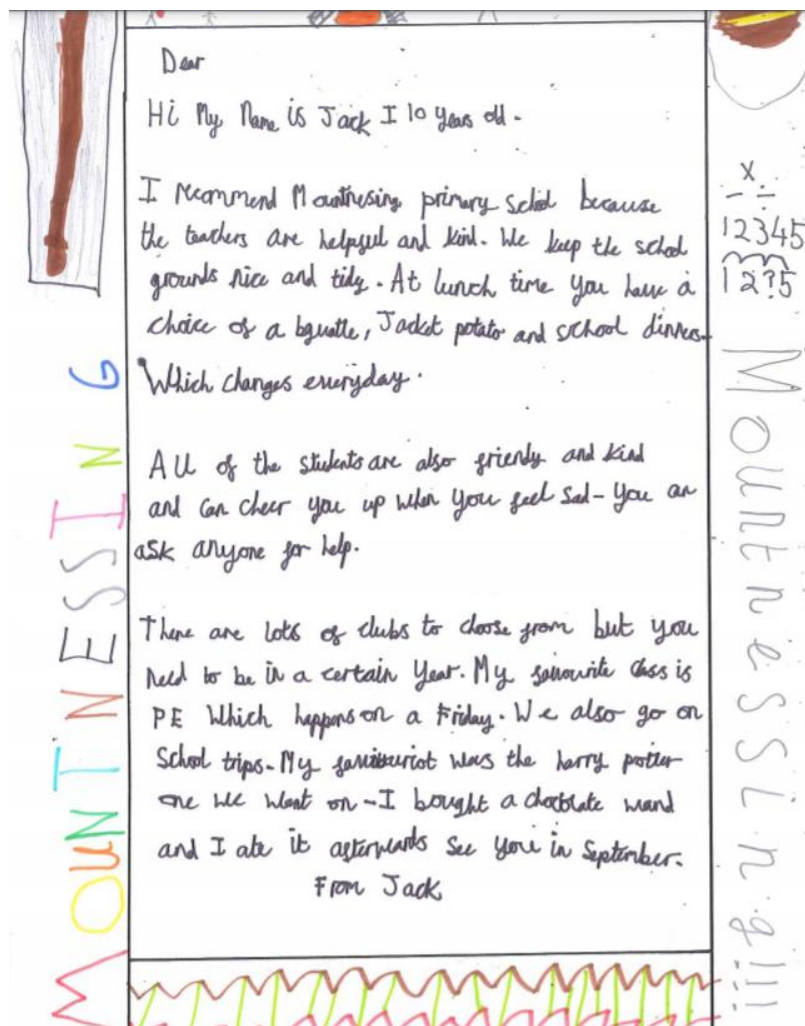 Dear
Hi My Name is Jack I 10 years old.
I recommend Mountnesing primary school because
the teachers are helpful and kind. We keep the school
grounds nice and tidy. At lunch time you have a
choice of a bguatte, Jacket potato and school dinners.
Which changes everyday.
All of the students are also friendy and kind
and can cheer you up when you feel sad - You can
ask anyone for help.
There are lots of clubs to choose from but you
need to be in a certain Year. My favourite class is
PE Which happens on a Friday. We also go on
School trips. My was the harry potter
one we went on - I bought a chocolate wand
and I ate it afterwards See you in September.
From Jack
MOUNTNESSING
x
- ÷
12345
12?5
Mountnessing!!!